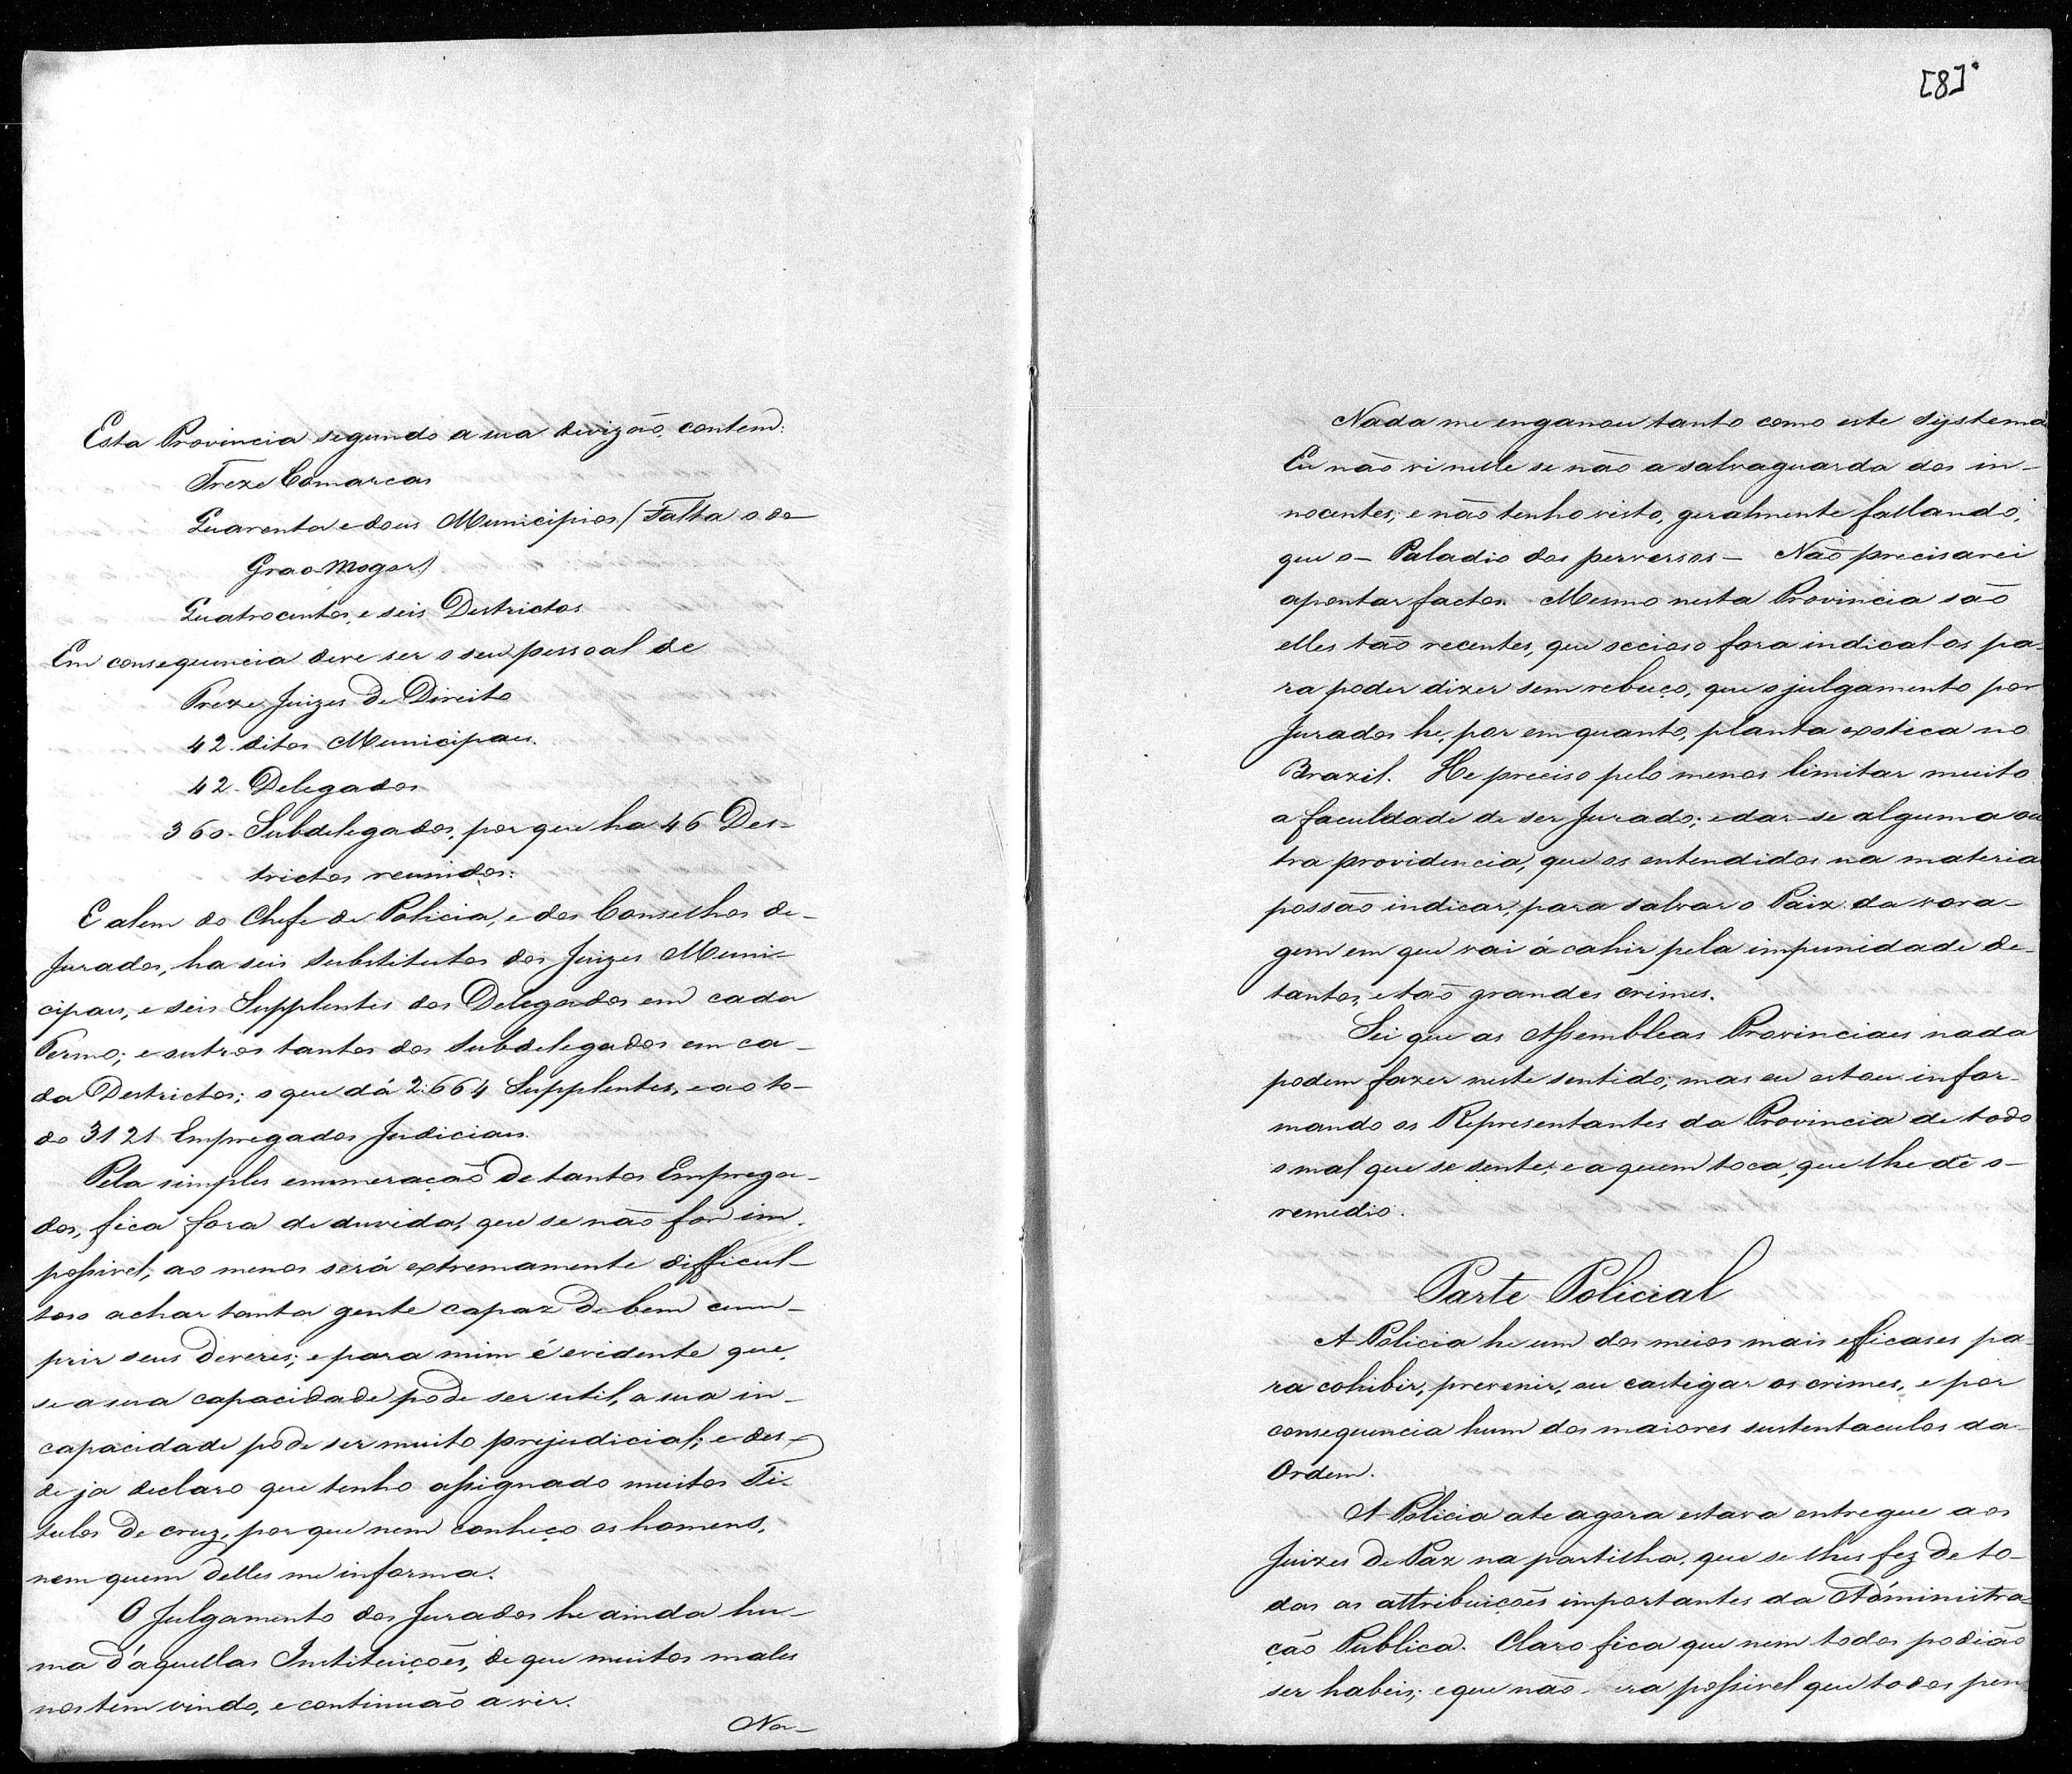 Esta Provincia segundo a sua divizão, contem:
Treze Comarcas
Quarenta e dous Municipios (Falta o do
Grao-Mogor)
Quatrocentos e seis Destrictos
Em consequencia deve ser o seu pessoal de
Treze Juizes de Direito
42 ditos Municipaes.
42 Delegados
360 Subdelegados, por que ha 46 Des-
trictos reunidos:
E alem do Chefe de Policia, e dos Conselhos de-
Jurados, ha seis substitutos dos Juizes Muni-
cipaes, e seis Supplentes dos Delegados em cada
Termo; e outros tantos dos Subdelegados em ca-
da Destrictos; o que dá 2:664 Supplentes, e ao to-
do 3121 Empregados Judiciaes.
Pela simples enumeração de tantos Emprega-
dos, fica fora de duvida, que se não for im-
possivel, ao menos será extremamente difficul-
toso achar tanta gente capaz de bem cum-
prir seus deveres; e para mim é evidente que,
se a sua capacidade pode ser util, a sua in-
capacidade pode ser muito prejudicial; e des-
de ja declaro que tenho assignado muitos Ti-
tulos de cruz, por que nem conheço os homens,
nem quem delles me informa.
O Julgamento dos Jurados he ainda hu-
ma d'aquellas Instituições, de que muitos males
nos tem vindo, e continuão a vir.
Na-
[8]
Nada me enganou tanto como este systema
Eu não vi nelle se não a salvaguarda dos in-
nocentes, e não tenho visto, geralmente fallando,
que o - Paladio dos perversos - Não precisarei
apontar factos. Mesmo nesta Provincia são
elles tão recentes, que ocioso fora indical-os pa-
ra poder dizer sem rebuço, que o julgamento por
Jurados he, por em quanto, planta exotica no
Brazil. He preciso pelo menos limitar muito
a faculdade de ser Jurado; e dar-se alguma ou
tra providencia, que os entendidos na materia
possão indicar, para salvar o Paiz da vora-
gem em que vai á cahir pela impunidade de-
tantos, e tão grandes crimes.
Sei que as Assembleas Provinciaes nada
podem fazer neste sentido; mas eu estou infor-
mando os Representantes da Provincia de todo
o mal que se sente, e a quem toca, que lhe dê o-
remedio.
Parte Policial
A Policia he um dos meios mais efficases pa-
ra cohibir, prevenir, ou castigar os crimes, e por
consequencia hum dos maiores sustentaculos da
Ordem.
A Policia ate agora estava entregue aos
Juizes de Paz na partilha, que se lhes fez de to-
das as attribuições importantes da Administra-
ção Publica. Claro fica que nem todos podião
ser habeis; e que não era possivel que todos pen